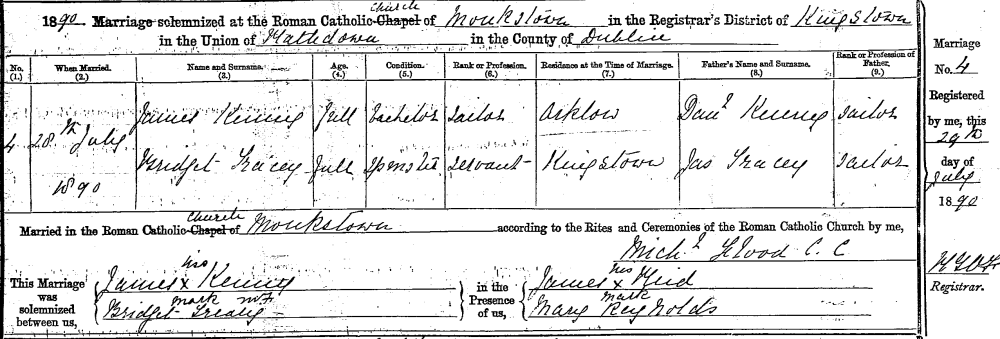 1890 Marriage solemnized at the Roman Catholic Chapel Church of Monkstown in the Registrar's District of Kingstown
in the Union of Rathdown in the County of Dublin
No. (1.) When Married. (2.) Name and Surname. (3.) Age. (4.) Condition. (5.) Rank or Profession. (6.) Residence at the Time of Marriage. (7.) Father's Name and Surname. (8.) Rank or Profession of Father. (9.)
4 28th July 1890
James Kenny Full Bachelor Sailor Arklow Danl Kenny Sailor
Bridget Tracey Full Spinster Servant Kingstown Jas Tracey Sailor
Married in the Roman Catholic Chapel Church of Monkstown according to the Rites and Ceremonies of the Roman Catholic Church by me,
Michl Flood C. C
This Marriage was solemnized between us,
James x Kenny
his mark
Bridget
in the Presence of us,
James x
his mark
Mary Reynolds
Marriage
No. 4
Registered
by me, this
29th
day of
July
1890
Registrar.